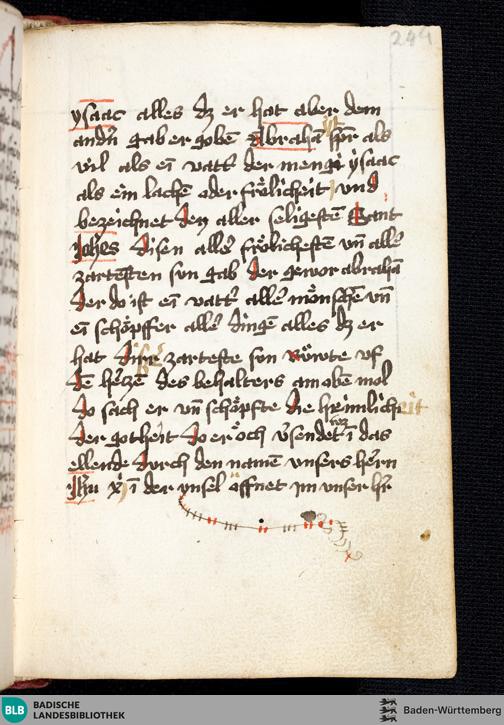 244
ysaac alles dz er hat aber dem
andn gab er goben Abraham ist spr als
vil als ein vatter der mengi ysaac
als ein lachen oder frölicheit vnd
bezeichnet den aller seligesten Sant
Johes disen aller frölichesten vn aller
zartesten sun gab der gewor abraham
der do ist ein vatter aller mönschen vn
ein schöpffer aller dingen alles dz er
hat diser zarteste sun rüwete vf
de herzen des behalters am oben mol
do sach er vn schöpfte die heimlicheit
der gotheit do er öch versendet wz i das
ellende durch den namen vnsers hern
Jhu x i der ynsel öffnet im vnser hr
BLB BADISCHE
LANDESBIBLIOTHEK
Baden-Württemberg